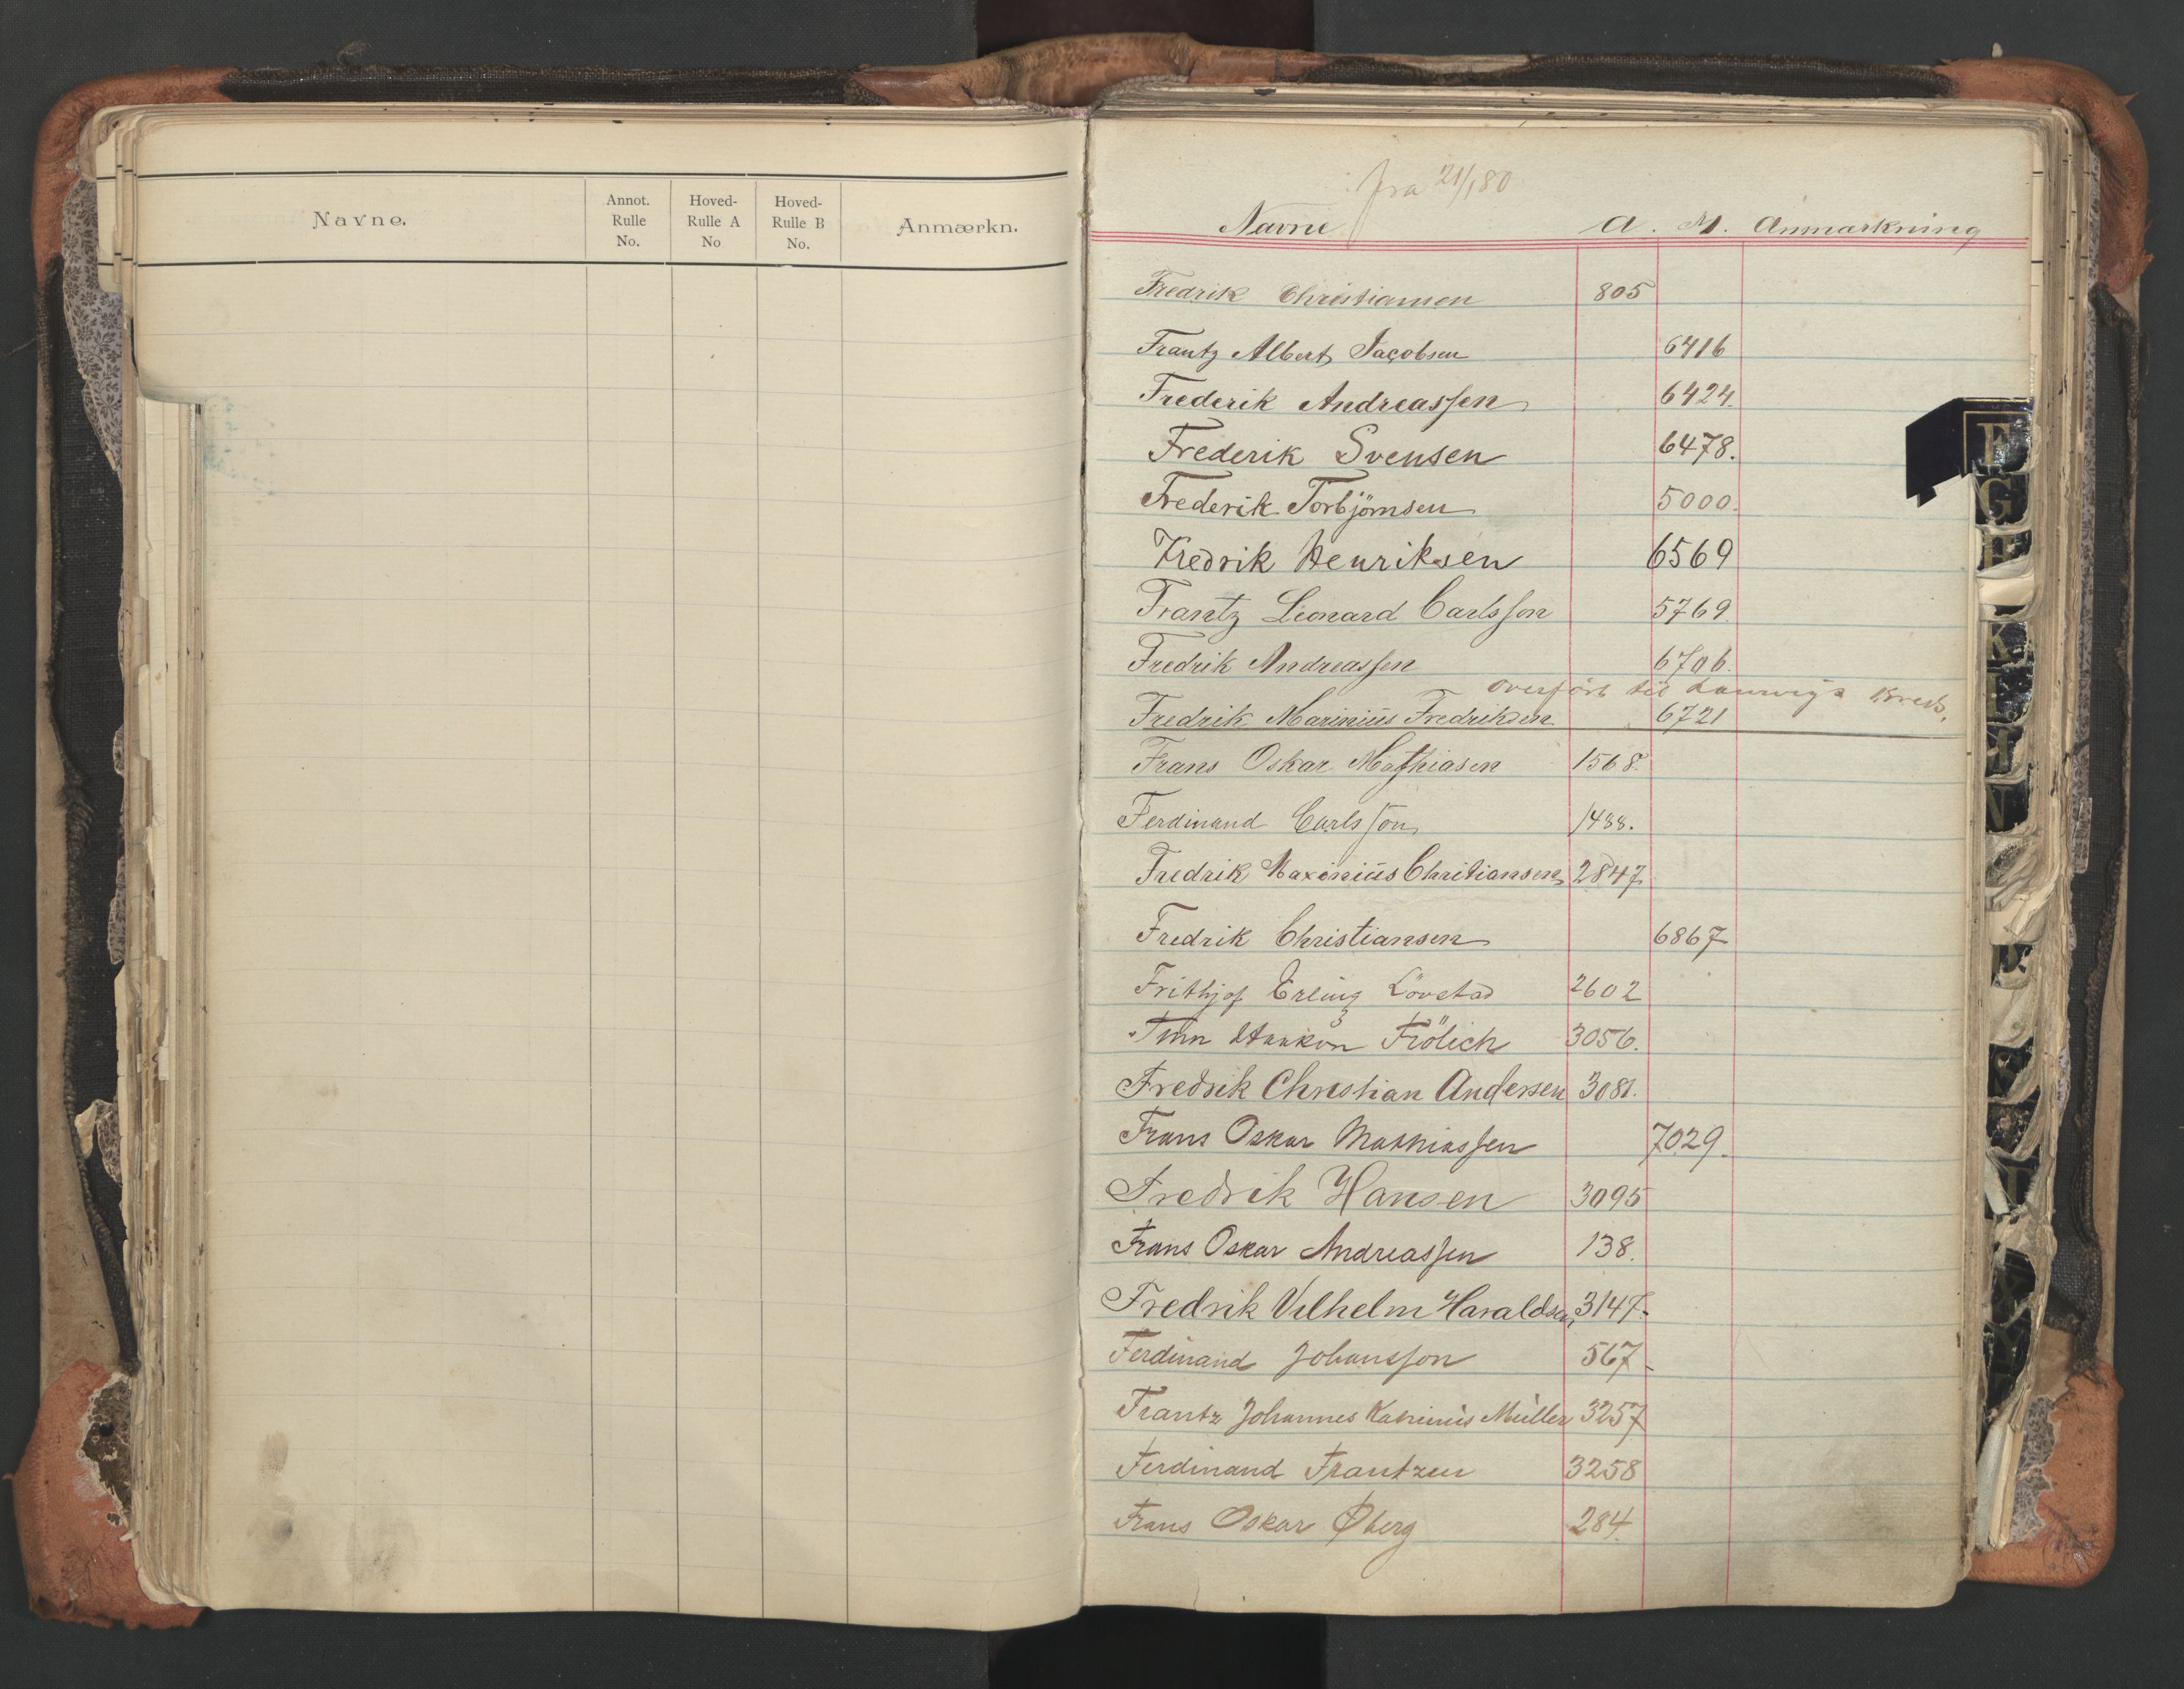 Navne.
Annot. Rulle No.
Hoved- Rulle A No
Hoved- Rulle B No.
Anmærkn.
fra 21/1 80
Navne A. M. Anmærkning
Fredrik Christiansen 805
Frantz Albert Jacobsen 6416
Frederik Andreassen 6424.
Frederik Svensen 6478.
Frederik Torbjörnsen 5000.
Fredrik Henriksen 6569
Frantz Leonard Carlsson 5769.
Fredrik Andreassen 6706.
overført til Laurvigs Kreds.
Fredrik Marinius Fredriksen 6721
Frans Oskar Mathiasen 1568.
Ferdinand Carlsson 1488.
Fredrik Maxinius Chritiansen 2847
Fredrik Christiansen 6867
Frithjof Erling Lövstad 2602
Finn Haakon Frölich 3056.
Fredrik Christian Andersen 3081.
Frans Oskar Mathiassen 7029.
Fredrik Hansen 3095
Frans Oskar Andreassen 138.
Fredrik Vilhelm Haraldsen 3147.
Ferdinand Johansson 567
Frantz Johannes Müller 3257
Ferdinand Frantzen 3258
Frans Oskar Øberg 284.
F
G
K
N